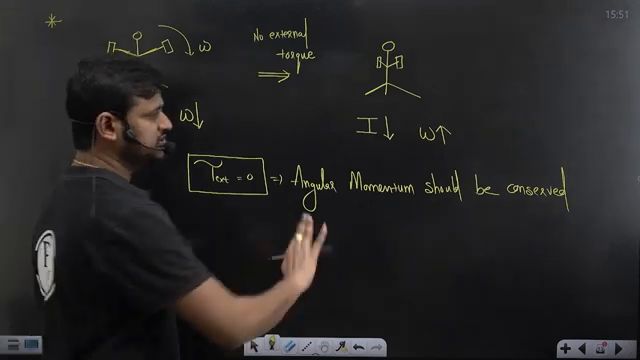 15:51
*
ω
No external
torque
⇒
ω↓
I↓ ω↑
τext = 0 ⇒ Angular Momentum should be conserved
F